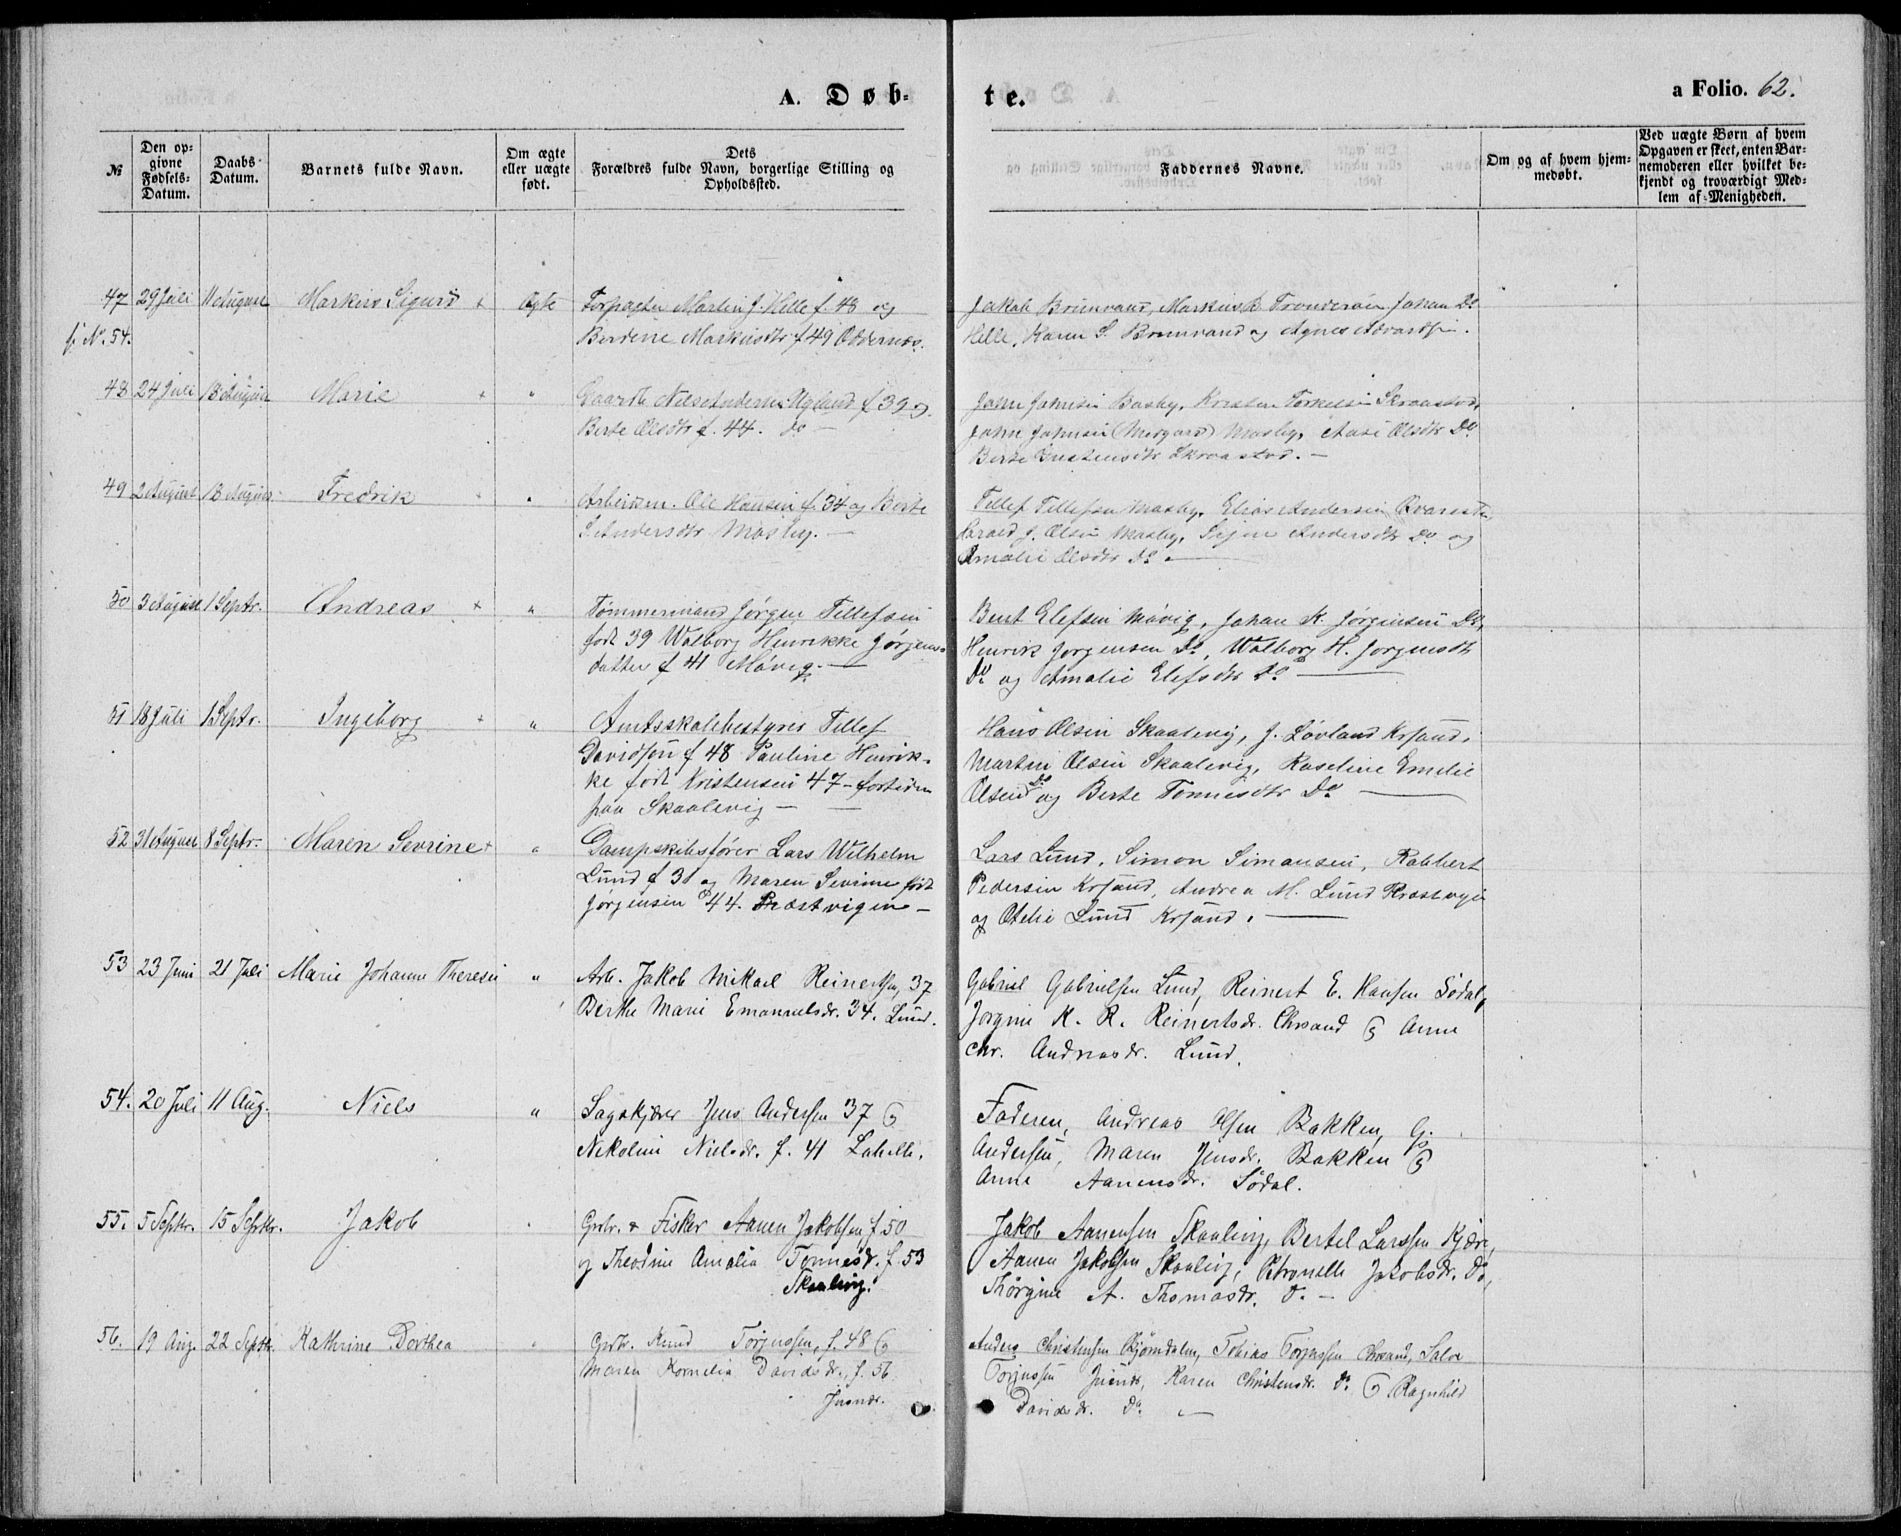 A. Døb-
te.
a Folio. 62.
№
Den op-
givne
Fødsels-
Datum.
Daabs-
Datum.
Barnets fulde Navn.
Om ægte
eller uægte
født.
Dets
Forældres fulde Navn, borgerlige Stilling og
Opholdssted.
Faddernes Navne.
Om og af hvem hjem-
medøbt.
Ved uægte Børn af hvem
Opgaven er skeet, enten Bar-
nemoderen eller hvilket be-
kjendt og troværdigt Med-
lem af Menigheden.
47 29 Juli 11 August Markus Sigurd + Ægte Martin J. Hille f. 48 og
f. No. 54. Berdine Markusdtr f 49 Oddernæs.
Jakob Brunvand, Markus Johan Do
Hille, Karen S. Brunvand og Agnes
48 24 Juli 18 August Marie + " Gaardb. Nils Andersen Ugland f 39 og
Berte Olsdtr f. 44. do —
John Johnsen Busby, Kristen Torkelsen Skraastad,
John Johnsen Mosby, Aase Olsdtr Do
Berte Skraastad. —
49 2 August 18 August Fredrik + " Arbeidsm. Ole Hansen f. 34 og Berte
S. Andersdtr Mosby. —
Tellef Tellefsen Mosby, Elias Andersen
Harald J. Olsen Mosby, Signe Andersdtr Do og
Amalie Olsdtr Do —
50 3 August 1 Septr. Andreas + " Tømmermand Jørgen Tellefsen
født 39 Walborg Henrikke Jørgens-
datter f 41 Møvig. —
Bent Elefsen Møvig, Johan K. Jørgensen Do,
Henrik Jørgensen Do, Walborg H. Jørgensdtr
Do og Amalie Elefsdtr Do —
51 18 Juli 1 Septr. Ingeborg + " Amtsskolebestyrer Tellef
Davidsen f 48 Pauline Henrik-
ke født Kristensen 47 - fortiden
paa Skaalevig —
Hans Olsen Skaalevig, J. Løvland Krsand.
Martin Olsen Skaalevig, Roseline Emilie
Olsen do og Berte Tønnesdtr Do —
52 31 August 8 Septr. Maren Sevrine + " Dampskibsfører Lars Wilhelm
Lund f 31 og Maren Sevrine født
Jørgensen 44. Præstvigen —
Lars Lund, Simon Simonsen, Robbert
Pedersen Krsand, Andrea M. Lund Præstvigen
og Otelie Lund Krsand. —
53 23 Juni 21 Juli Marie Johanne Theresie " Arb. Jakob Mikael Reinertsen, 37
Berthe Marie Emanuelsdr. 34. Lund.
Gabriel Gabrielsen Lund, Reinert E. Hansen Sødal,
Jørgine K. R. Reinertsdr. Chrsand og Anne
Chr. Andreasdr. Lund.
54. 20 Juli 11 Aug. Niels " Sagskjærer Jens Andersen 37 og
Nikoline Nielsdr. f. 41 Lahelle.
Faderen, Andreas Olsen Bakken, G.
Andersen, Maren Jensdr. Bakken og
Anne Aanensdr. Sødal.
55. 5 Septbr. 15 Septbr. Jakob " Grbr. & Fisker Aanen Jakobsen f 50
og Theodine Amalia Tønnesdr. f. 53
Skaalevig.
Jakob Aanensen Skaalevig, Bertel Larssen Kjære,
Aanen Jakobsen Skaalevig, Petronelle Jakobsdr. Do,
Thørgine A. Thomasdr. Do. —
56. 19 Aug. 22 Septbr. Kathrine Dorthea " Grbr. Knud Torjussen, f. 48 og
Maren Kornelia Davidsdr., f. 56.
Anders Christensen Bjørndalen, Tobias Torjussen Chrsand, Salve
Torjussen Karen Christensdr. Do og Ragnhild
Davidsdr. Do —